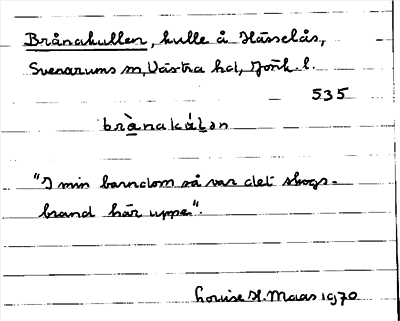 Brånakullen, kulle å Hässelås,
Svenarums sn, Västra hd, Jönk. l.
535
brànakálən
"I min barndom så var det skogs-
brand här uppe".
Louise H. Maas 1970